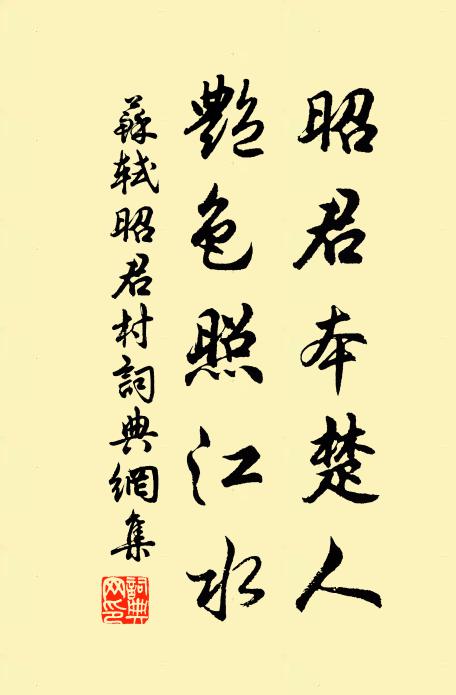 昭君本楚人
艷色照江水
蘇軾昭君村詞典網集
詞典網印